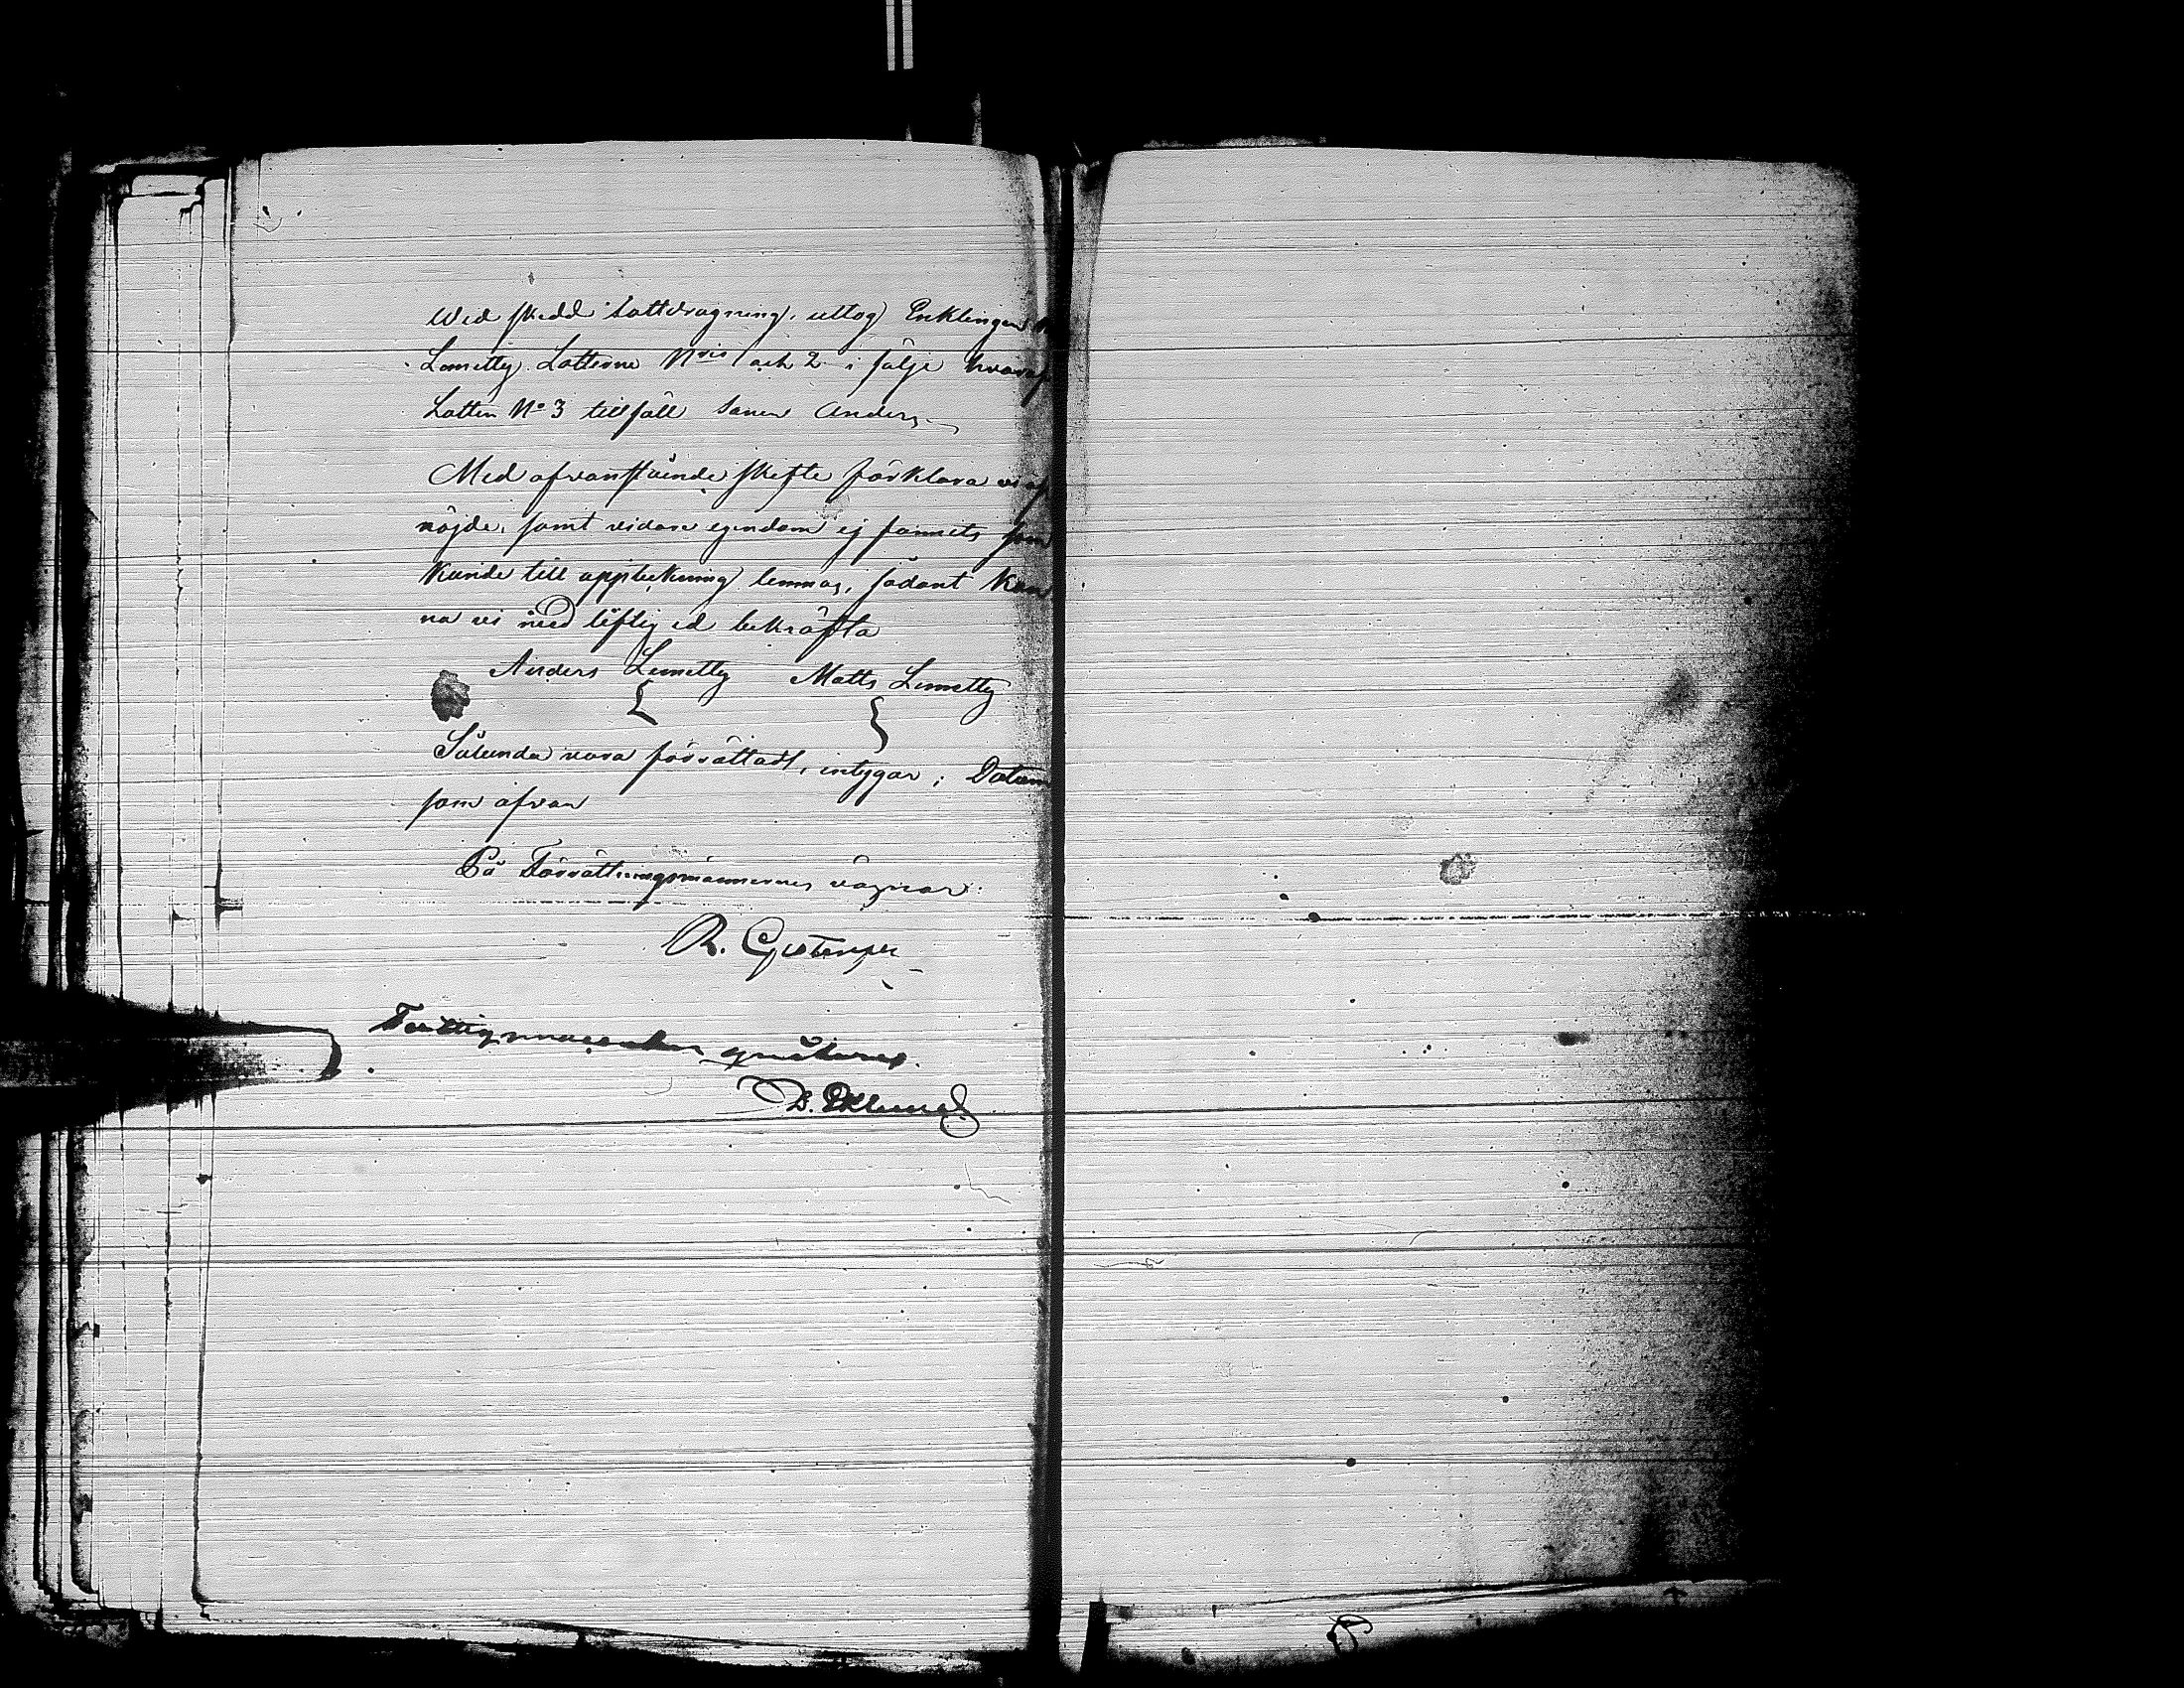 Wed skedd Lottdragning, uttog Enklingen
Lemetty Lotterne Nris 1 och 2 i följe hvaraf
Lotten No 3 tillföll Sonen Anders
Med ofvanstående skifte förklara vi
nöjde, samt vidare egendom ej fannets som
kunde till uppteckning lemnas, sådant kun
na vi med liflig ed bekräfta
Anders Lemetty Matts Lemetty
Sålunda vara förrättadt, intygar; Datum
som ofvan
På Förrättningsmännernes vägnar:
R.
Fattigprocenten qvitteras.
B. Eklund